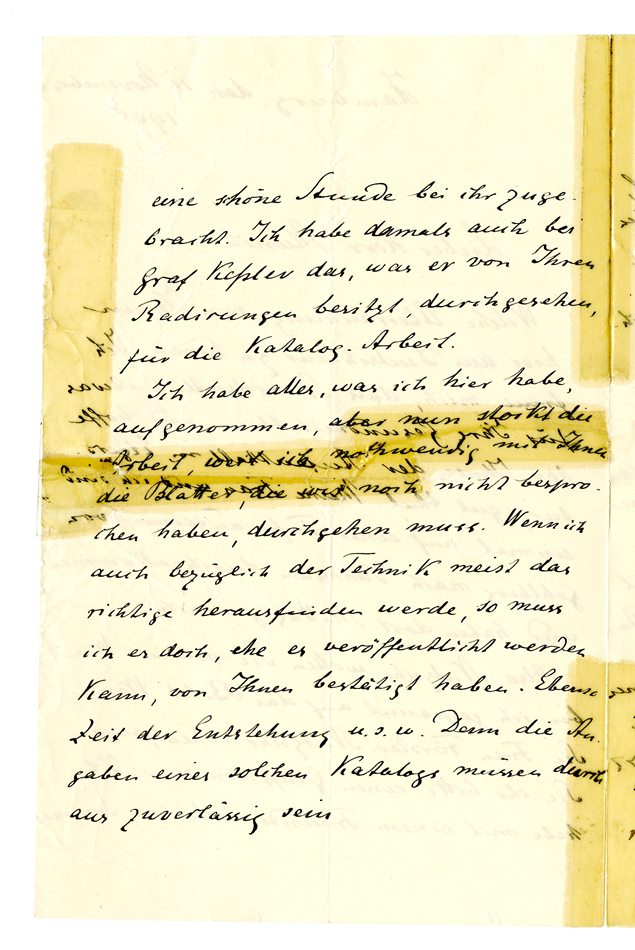 eine schöne Stunde bei ihr zuge-
bracht. Ich habe damals auch bei
Graf Keßler das, was er von Ihren
Radirungen besitzt, durchgesehen,
für die Katalog-Arbeit.
Ich habe alles, was ich hier habe,
aufgenommen, aber nun stockt die
Arbeit, weil ich nothwendig mit Ihnen
die Blätter, die wir noch nicht bespro-
chen haben, durchgehen muss. Wenn ich
auch bezüglich der Technik meist das
richtige herausfinden werde, so muss
ich es doch, ehe es veröffentlicht werden
kann, von Ihnen bestätigt haben. Ebenso
Zeit der Entstehung u.s.w. Denn die An-
gaben eines solchen Katalogs müssen durch-
aus zuverlässig sein